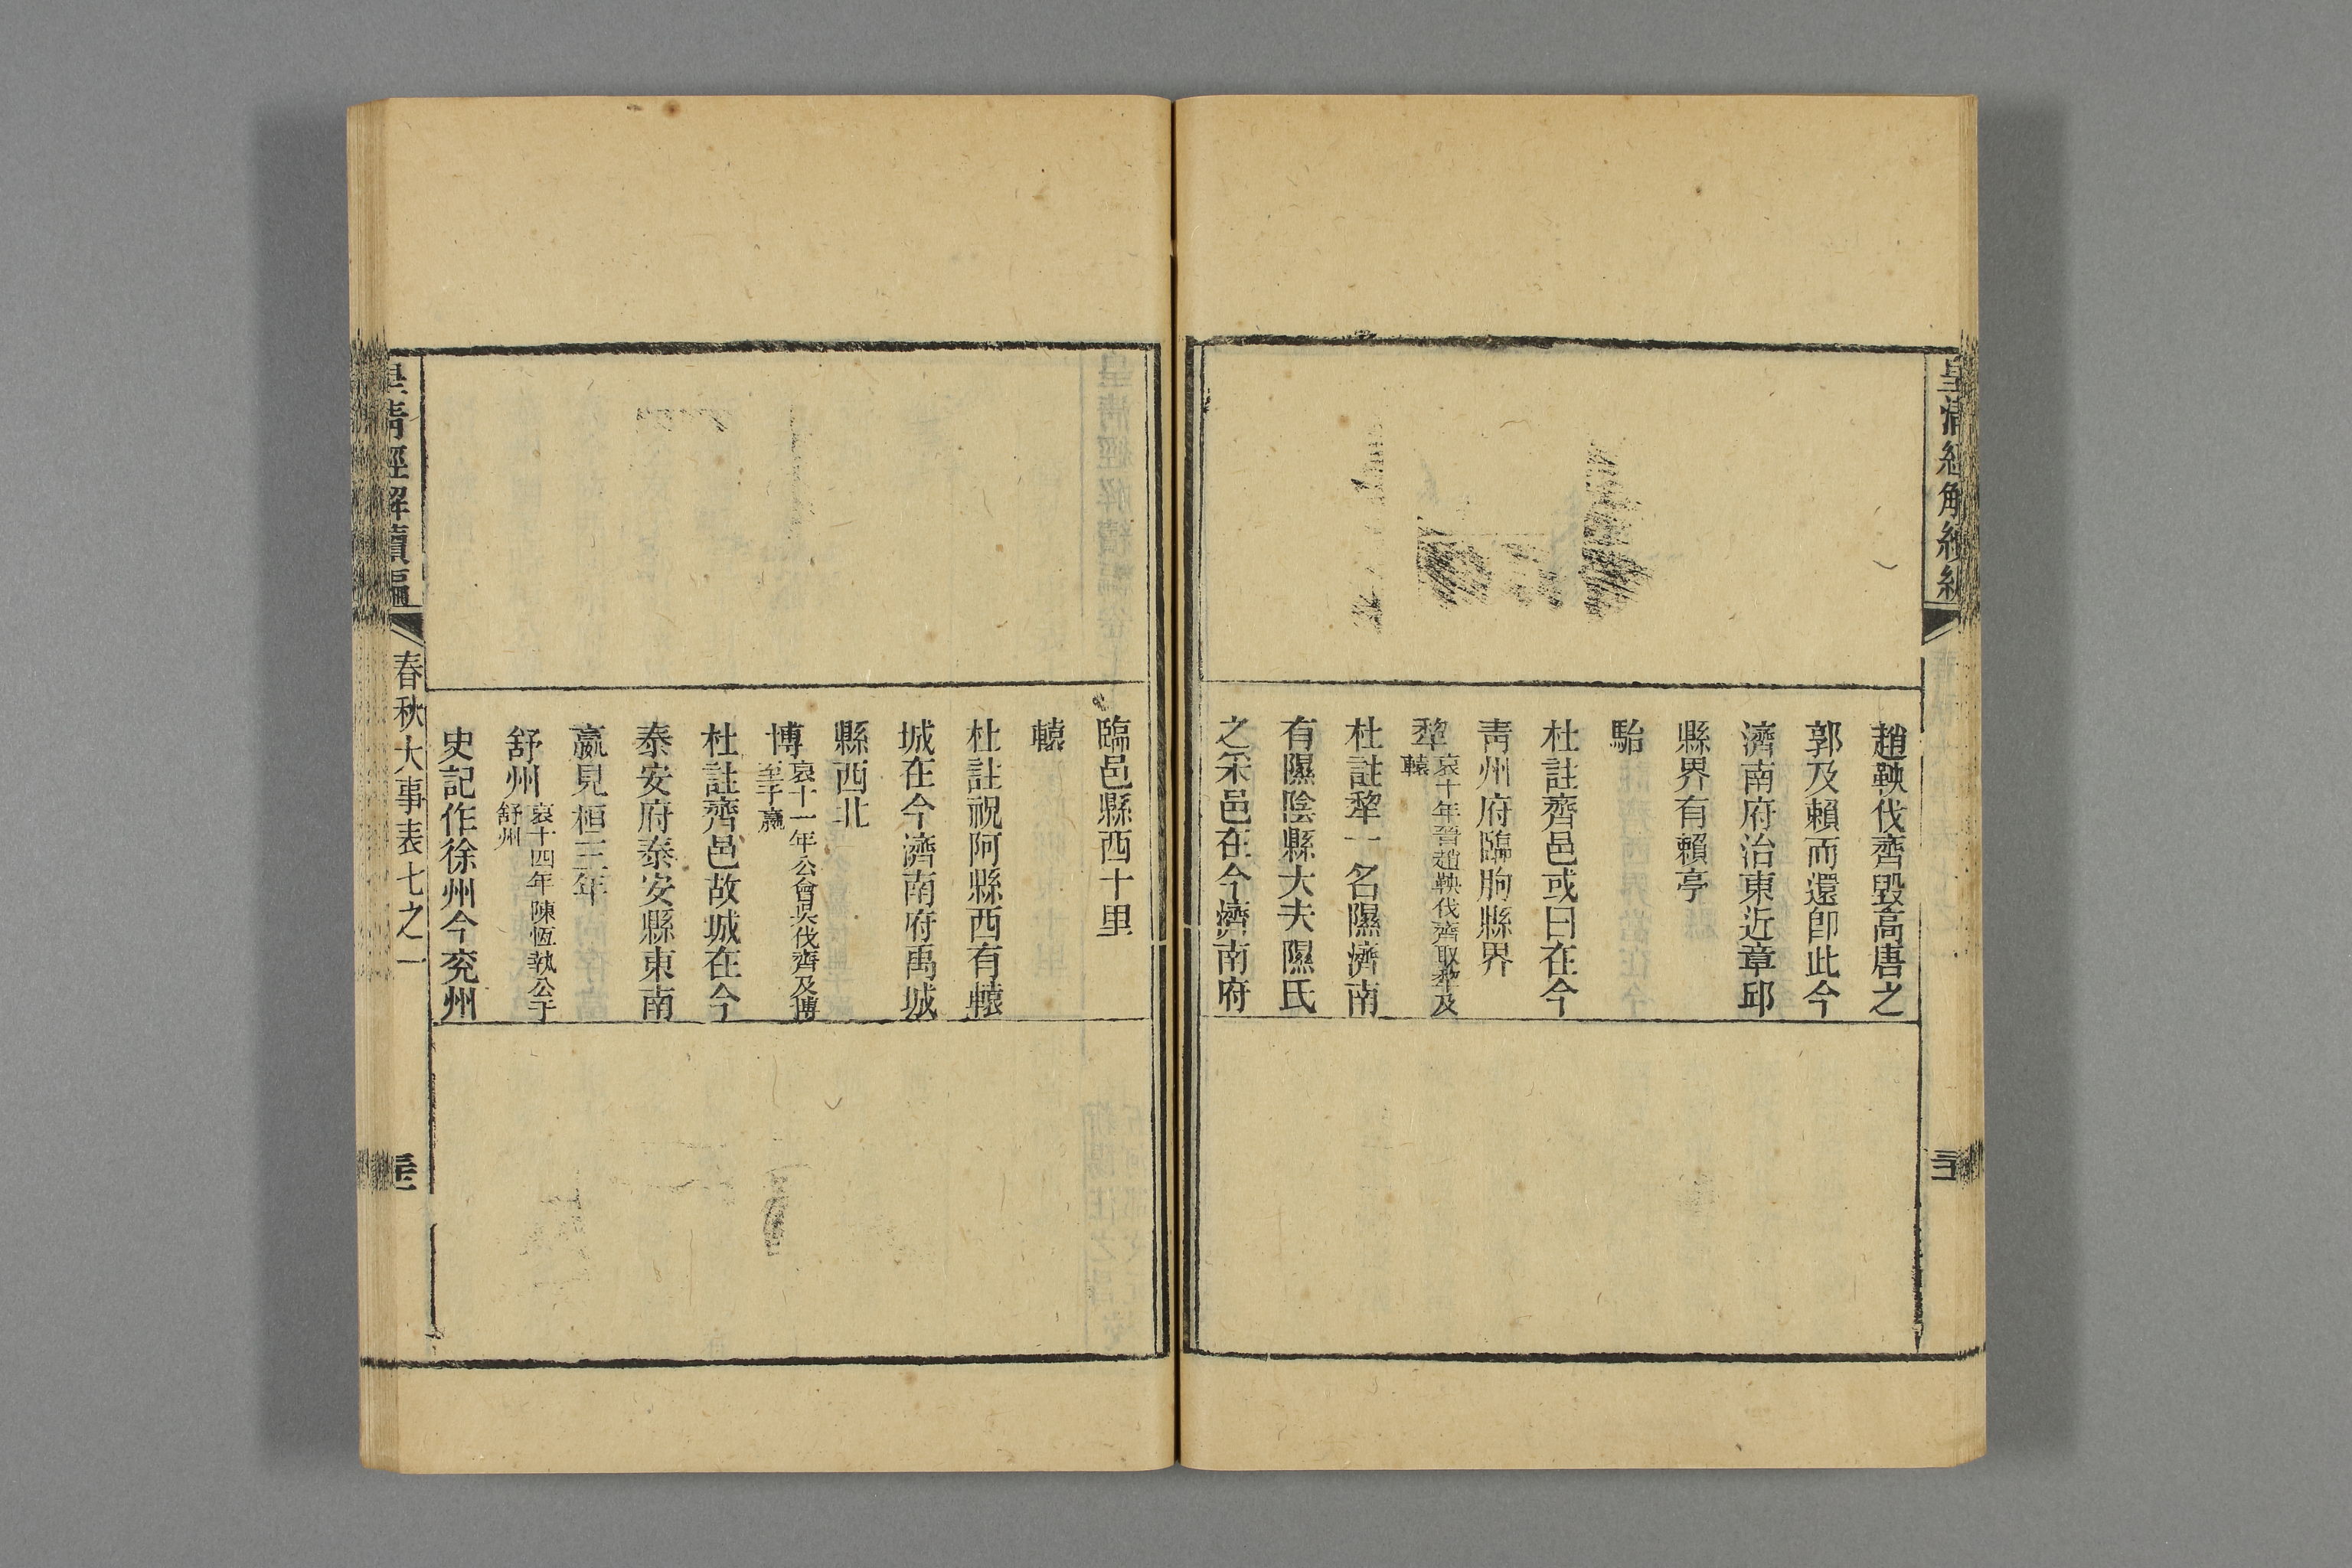 趙鞅伐齊毀高唐之
郭及賴而還卽此今
濟南府治東近章邱
縣界有賴亭
駘
杜註齊邑或曰在今
青州府臨朐縣界
犂哀十年晉趙鞅伐齊取犂及
轅
杜註犂一名隰濟南
有隰陰縣大夫隰氏
之采邑在今濟南府
臨邑縣西十里
轅
杜註祝阿縣西有轅
城在今濟南府禹城
縣西北
博哀十一年公會吳伐齊及博
至于嬴
杜註齊邑故城在今
泰安府泰安縣東南
嬴見桓三年
舒州哀十四年陳恆執公于
舒州
史記作徐州今兗州
皇清經解續編
春秋大事表七之一